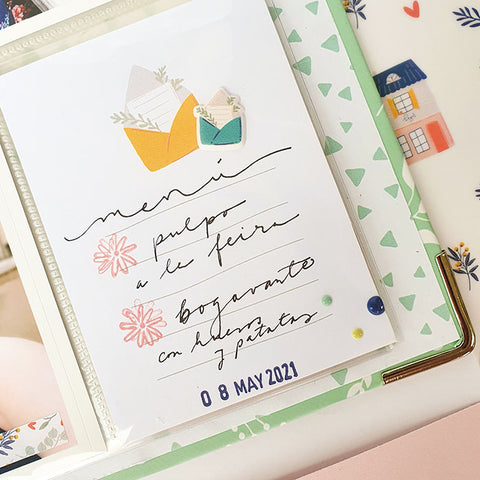 menú
pulpo
a la feira
bogavante
con huevos
y patatas
08 MAY 2021